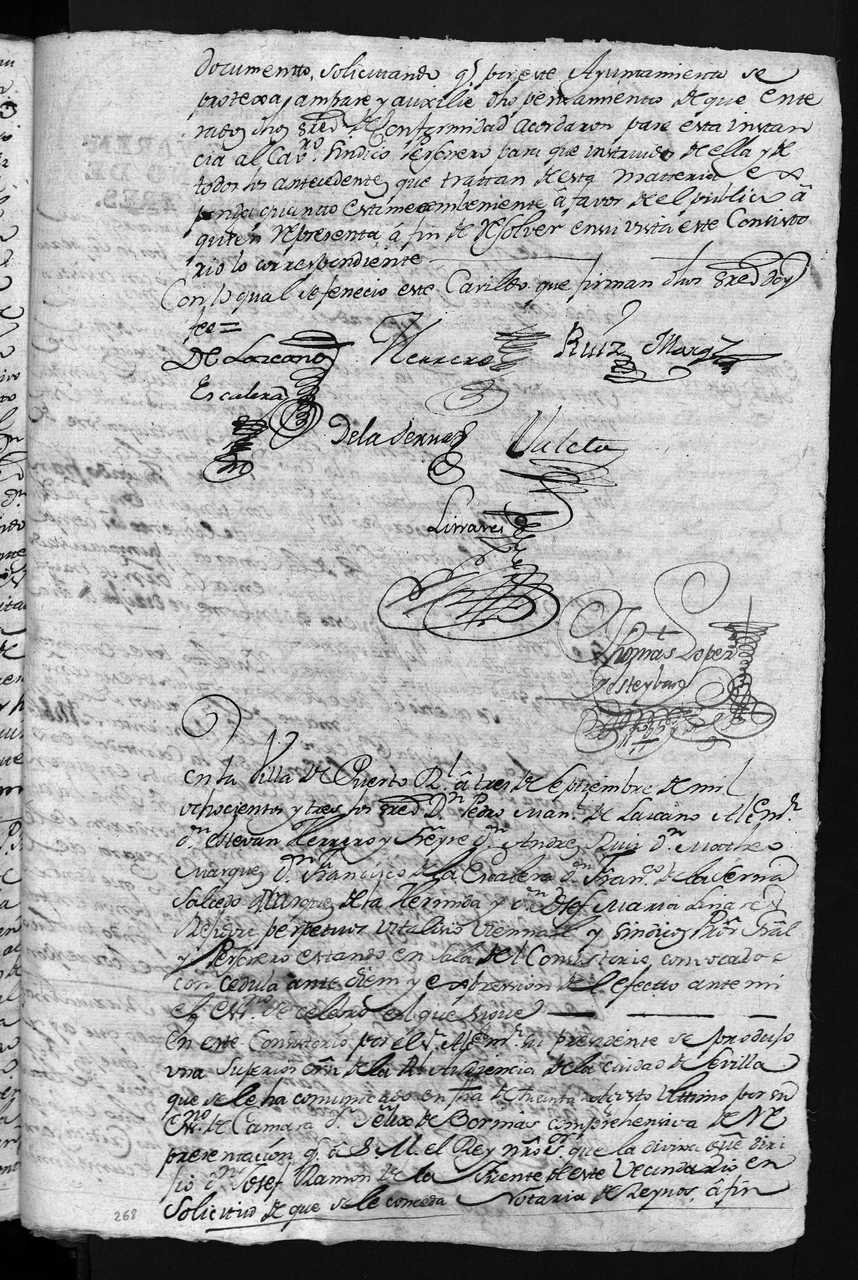 documentto, solicittando q.e por este Ayuntamiento se
protexa, ampare y auxilie dho pensamiento de que ente
rados dhos Sres de Conformidad acordaron pase esta instan
cia al Cav.ro Sindico Persnero para que instruido de ella y de
todos los antecedentes que trattan de esta matteria ex
ponda quanto estime combeniente â favor de el publico â
quien representa â fin de resolver en su vista este Consisto
rio lo correspondiente
Con lo qual se fenecio este Cavildo que firman dhos Sres doy
fee=
De Lozcano Herrero Ruiz Marqz
Escalera
De la Serna
Linares
Thomas Lopez
de Steyban
En la Villa de Puerto R.l â tres de Septiembre de mil
ochocientos y tres los Sres D.n Pedro Man.l de Lazcano Alc.e m.r
d.n Estevan Herrero y Freyre d.n Andres Ruiz d.n Matheo
Marquez d.n Francisco de la Escalera d.n Fran.co de la Serna
Salcedo de la Hermida y d.n Josef Maria Linares
Rexidores perpetuos vitalisio Viennal y Sindicos Pror Gral
y Persnero estando en Sala de el Consistorio, convocados
con cedula ante diem y expression del efecto ante mi
el es.no se celebró el que sigue
En este Consistorio por el S.r Alc.e m.r su presidente se produjo
una Superior orn de la R.l Audiencia de la ciudad de Sevilla
que se le ha comunicado en fha de treinta Agosto ultimo por su
Es.no de Camara d.n Felix de Bormas comprehensiva de Re
presentación q.e â S. M. el Rey nro S.or que la divina gue diri
jio d.n Josef Ramon de la Fuente de este Vecindario en
Solicitud de que se le conceda Notaria de Reynos, â fin
268